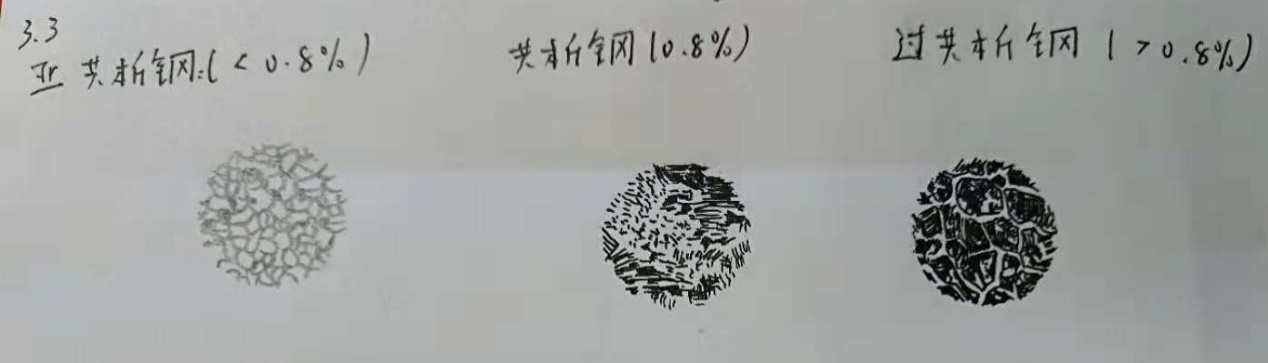 3.3
亚共析钢:(<0.8%)
共析钢(0.8%)
过共析钢(>0.8%)